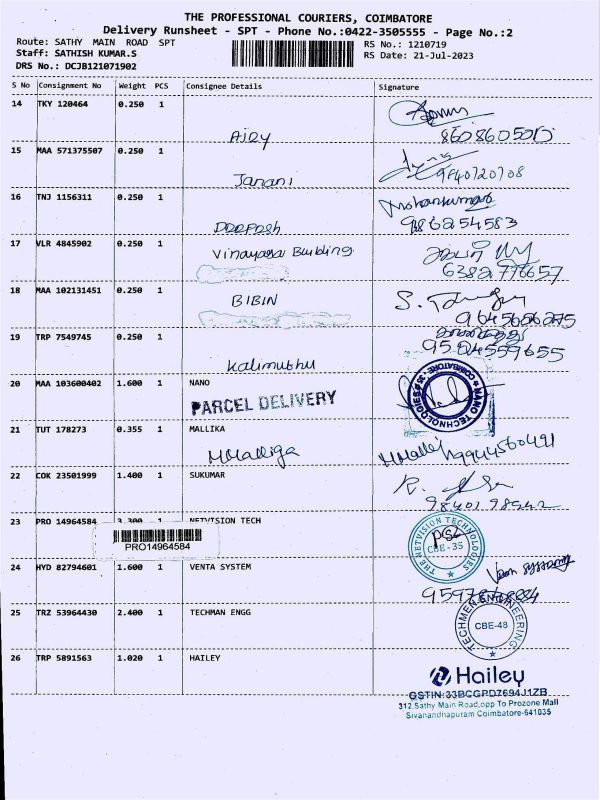 THE PROFESSIONAL COURIERS, COIMBATORE
Delivery Runsheet - SPT - Phone No.:0422-3505555 - Page No.:2
Route: SATHY MAIN ROAD SPT
Staff: SATHISH KUMAR.S
DRS No.: DCJB121071902
RS No.: 1210719
RS Date: 21-Jul-2023
S No Consignment No Weight PCS Consignee Details Signature
14 TKY 120464 0.250 1
Ajay 8608605050
15 MAA 571375507 0.250 1
Janani 9840720708
16 TNJ 1156311 0.250 1
Mohankumar
Deepash 986254583
17 VLR 4845902 0.250 1 Vinayaga Building
6382776657
18 MAA 102131451 0.250 1 BIBIN
9645656275
19 TRP 7549745 0.250 1
Kalimuthu 9524559655
20 MAA 103600402 1.600 1 NANO
PARCEL DELIVERY
NANO TECHNOLOGIES COIMBATORE - 35
21 TUT 178273 0.355 1 MALLIKA
M Malliga 9944560491
22 COK 23501999 1.400 1 SUKUMAR
9840198942
23 PRO 14964584 3.300 1 NETVISION TECH
PRO14964584
THE NETVISION TECHNOLOGIES CBE-35
24 HYD 82794601 1.600 1 VENTA SYSTEM
25 TRZ 53964430 2.400 1 TECHMAN ENGG
TECHMEN ENGINEERING CBE-48
26 TRP 5891563 1.020 1 HAILEY
Hailey
GSTIN:33BCGPD7694J1ZB
312,Sathy Main Road,opp To Prozone Mall
Sivanandhapuram Coimbatore-641035